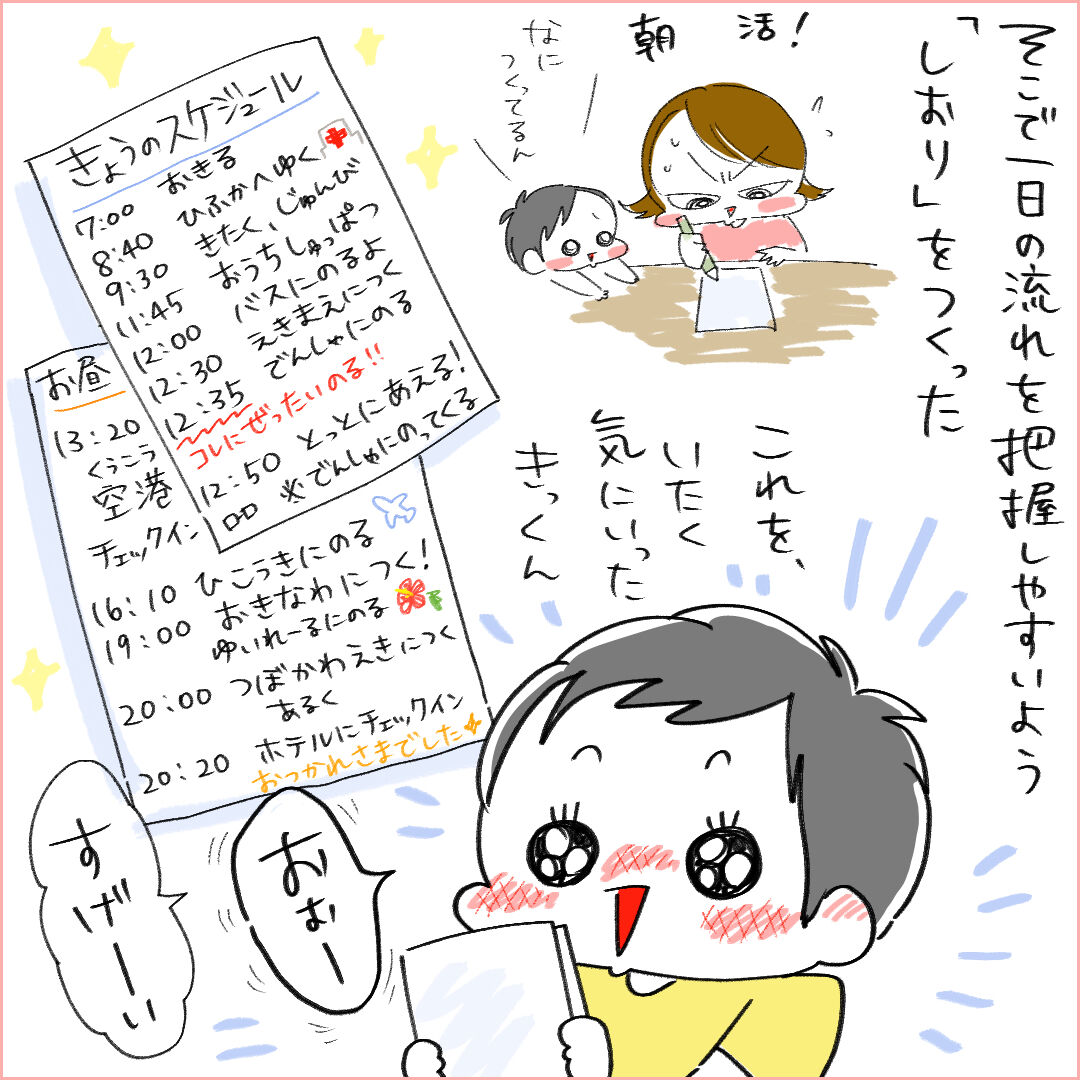 そこで一日の流れを把握しやすいよう
「しおり」をつくった
朝活!
なに
つくってるん
きょうのスケジュール
7:00 おきる
8:40 ひふかへゆく
9:30 きたく、じゅんび
11:45 おうちしゅっぱつ
12:00 バスにのるよ
12:30 えきまえにつく
12:35 でんしゃにのる
コレにぜったいのる!!
12:50 とっとにあえる!
※でんしゃにのってくる
お昼
13:20
くうこう
空港
チェックイン
16:10 ひこうきにのる
19:00 おきなわにつく!
ゆいれーるにのる
20:00 つぼかわえきにつく
あるく
20:20 ホテルにチェックイン
おつかれさまでした
これを、
いたく
気にいった
きっくん
おぉー
すげーい